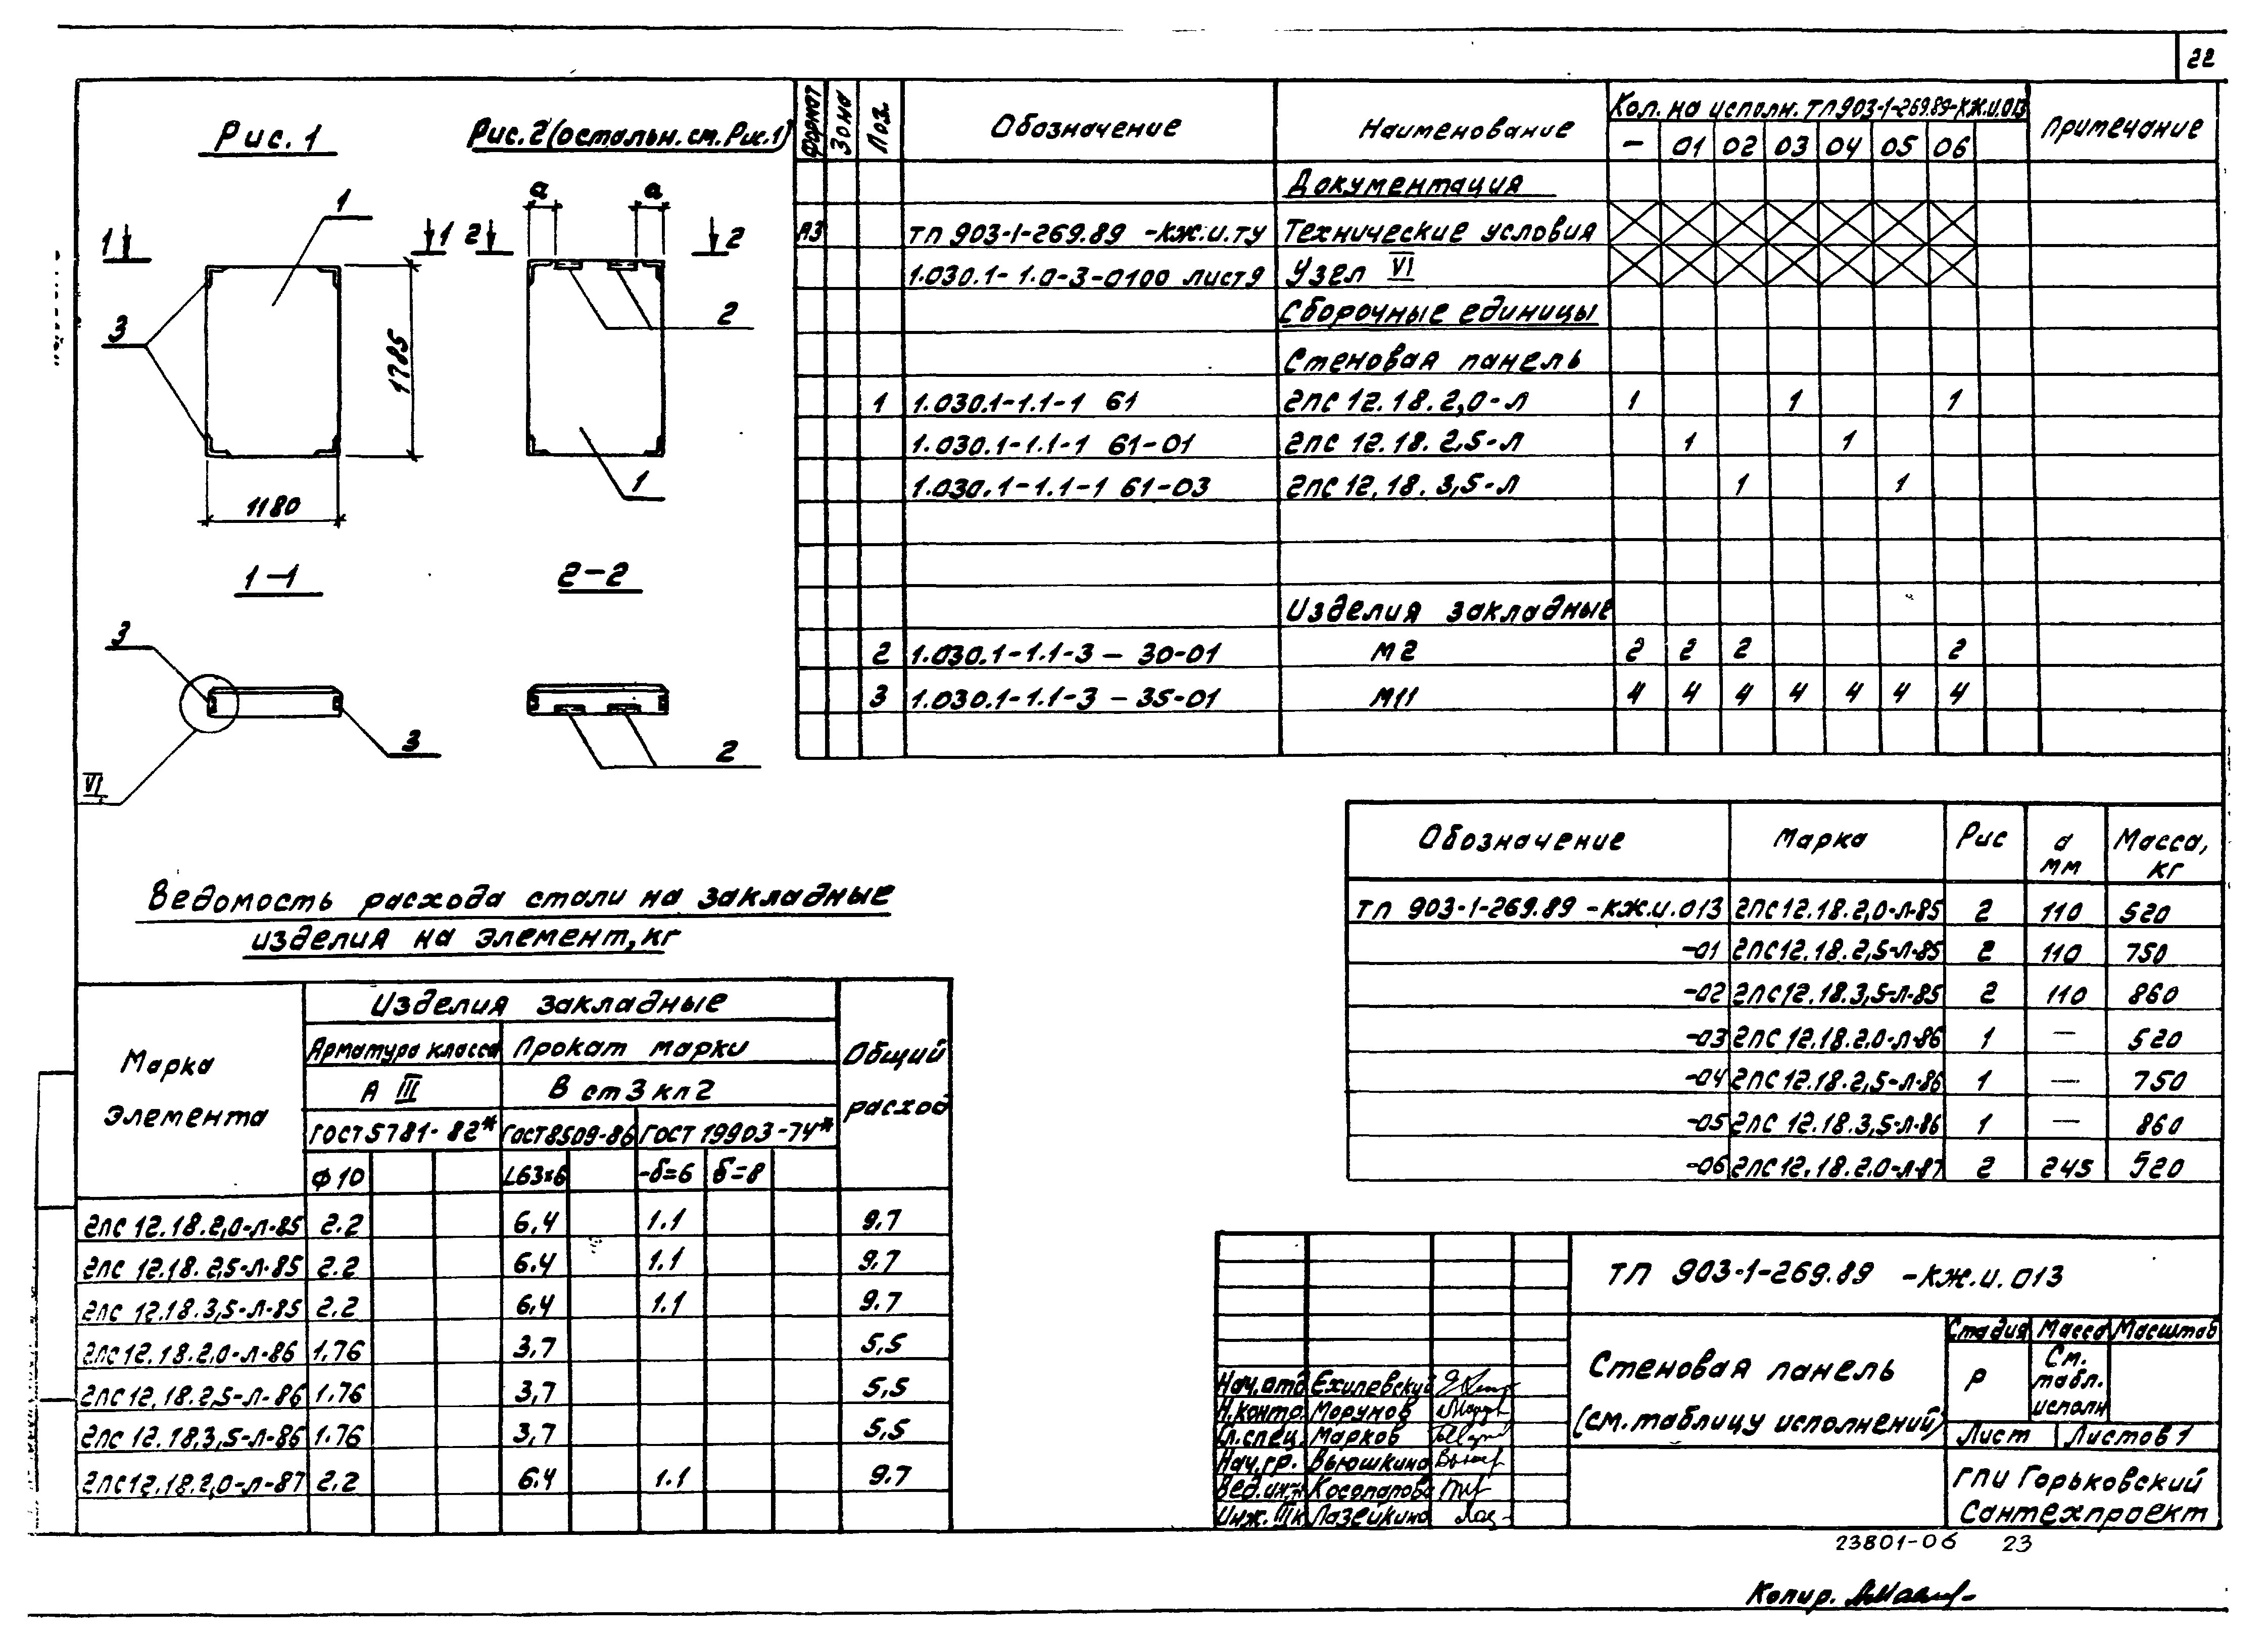 22
Рис. 1
Рис. 2 (остальн. см. Рис. 1)
1
1
1
3
1785
1180
а а
2 2
2
1
1-1
2-2
3
3
VI
2
Формат Зона Поз. Обозначение Наименование Кол. на исполн. ТП 903-1-269.89-КЖ.И.013 Примечание
— 01 02 03 04 05 06
Документация
А3 ТП 903-1-269.89 -КЖ.И.ТУ Технические условия
1.030.1-1.0-3-0100 лист 9 Узел VI
Сборочные единицы
Стеновая панель
1 1.030.1-1.1-1 61 2ПС 12.18.2,0-Л 1 1 1
1.030.1-1.1-1 61-01 2ПС 12.18.2,5-Л 1 1
1.030.1-1.1-1 61-03 2ПС 12.18.3,5-Л 1 1
Изделия закладные
2 1.030.1-1.1-3 — 30-01 М2 2 2 2 2
3 1.030.1-1.1-3 — 35-01 М11 4 4 4 4 4 4 4
Обозначение Марка Рис а мм Масса, кг
ТП 903-1-269.89 -КЖ.И.013 2ПС12.18.2,0-Л-85 2 110 520
-01 2ПС12.18.2,5-Л-85 2 110 750
-02 2ПС12.18.3,5-Л-85 2 110 860
-03 2ПС12.18.2.0-Л-86 1 — 520
-04 2ПС12.18.2,5-Л-86 1 — 750
-05 2ПС 12.18.3,5-Л-86 1 — 860
-06 2ПС12.18.2.0-Л-87 2 245 520
Ведомость расхода стали на закладные
изделия на элемент, кг
Марка элемента Изделия закладные Общий расход
Арматура класса Прокат марки
А III В ст 3 кп 2
ГОСТ 5781-82* ГОСТ 8509-86 ГОСТ 19903-74*
Ф 10 L63×6 -δ=6 δ=8
2ПС 12.18.2,0-Л-85 2.2 6.4 1.1 9.7
2ПС 12.18. 2,5-Л-85 2.2 6.4 1.1 9.7
2ПС 12.18.3,5-Л-85 2.2 6.4 1.1 9.7
2ПС 12.18.2,0-Л-86 1.76 3,7 5,5
2ПС 12,18.2,5-Л-86 1.76 3,7 5,5
2ПС 12.18.3,5-Л-86 1.76 3,7 5,5
2ПС12.18.2,0-Л-87 2.2 6.4 1.1 9.7
ТП 903-1-269.89 -КЖ.И.013
Стеновая панель
(см. таблицу исполнений)
Стадия Масса Масштаб
Р См. табл. исполн
Лист Листов 1
ГПИ Горьковский
Сантехпроект
Нач.отд Ехилевский
Н.контр. Морунов
Гл.спец. Марков
Нач.гр. Вьюшкина
Вед.инж Косопарова
Инж. IIIк Лазейкина
23801-06 23
Копир.